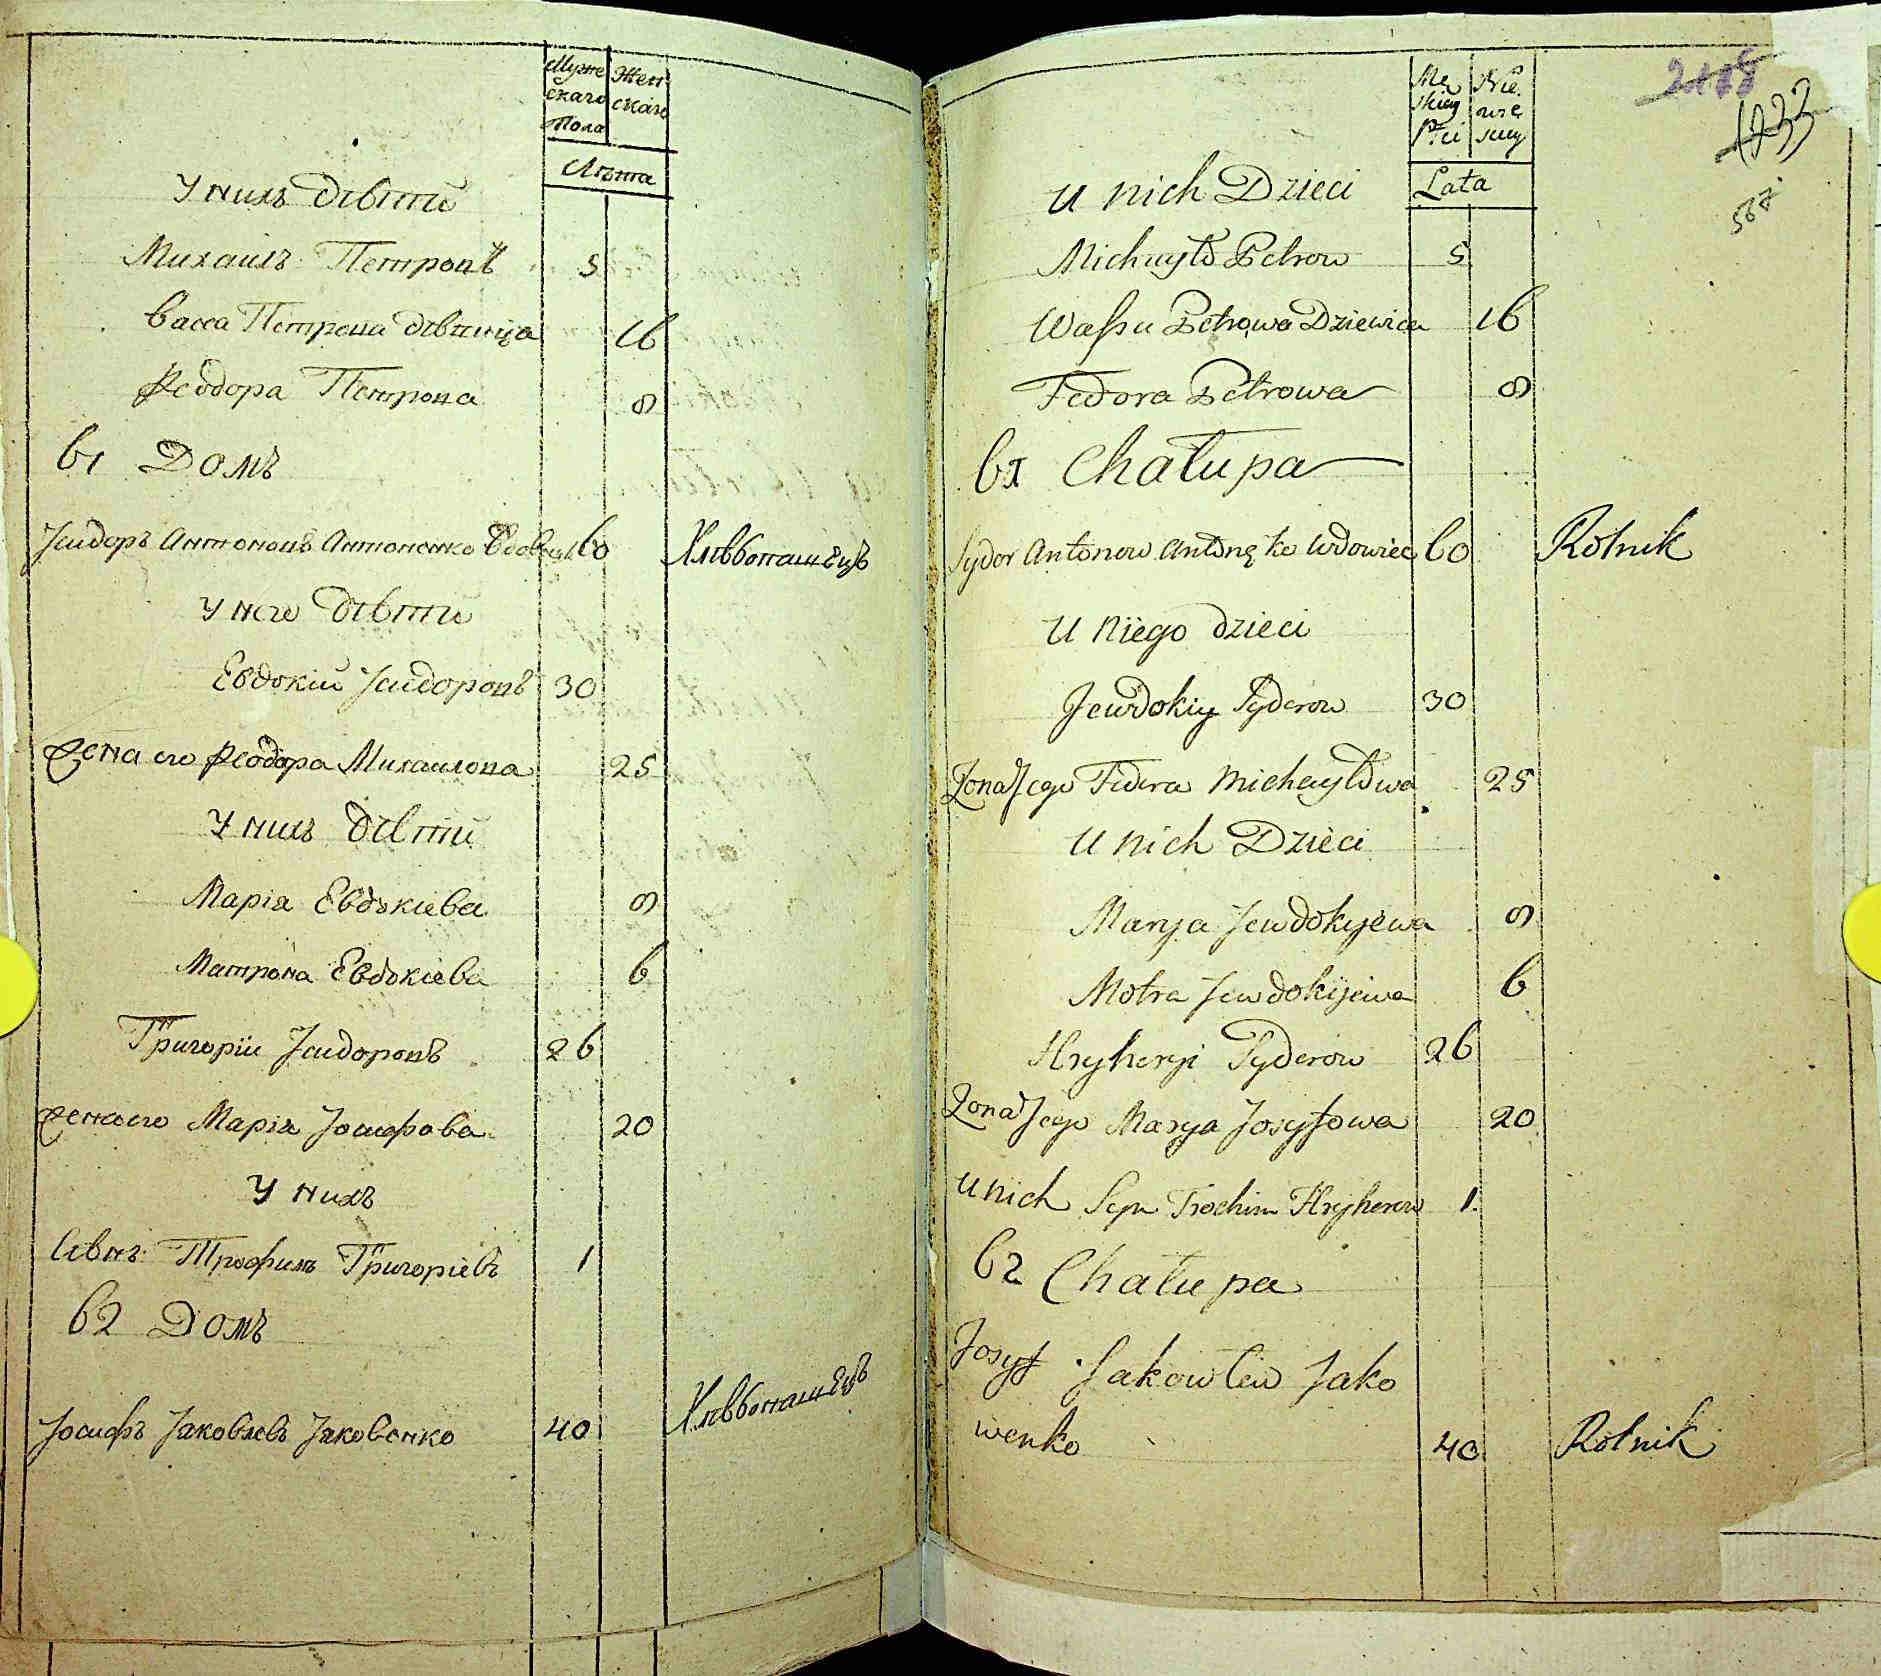 Мужескаго Пола
Женскаго
Лѣта
У нихъ дѣти
Михаилъ Петровъ 5
Васса Петрова дѣвица 16
Феодора Петрова 8
61 Домъ
Исидоръ Антоновъ Антоненко Вдовецъ 60 Хлѣбопашецъ
У него дѣти
Евдокий Исидоровъ 30
Жена его Феодора Михаилова 25
У нихъ дѣти
Мария Евдокиева 8
Матрона Евдокиева 6
Григорій Исидоровъ 26
Жена его Марія Іосифова 20
У нихъ
Сынъ Трофимъ Григоріевъ 1
62 Домъ
Іосифъ Іаковлевъ Іаковенко 40 Хлѣбопашецъ
Męskiey Płci
Niewieściey
Lata
1233
u nich Dzieci
Michayło Petrow 5
Wassa Petrowa Dziewica 16
Fedora Petrowa 8
61 Chałupa
Sydor Antonow Antonęko Wdowiec 60 Rolnik
u niego dzieci
Jewdokiy Syderow 30
Żona Jego Fedora Michayłowa 25
u nich Dzieci
Marya Jewdokyjewa 8
Motra Jewdokijewa 6
Hryhoryi Syderow 26
Żona Jego Marya Josyfowa 20
u nich Syn Trochim Hryhorow 1
62 Chałupa
Josyf Jakowlew Jako
wenko 40 Rolnik